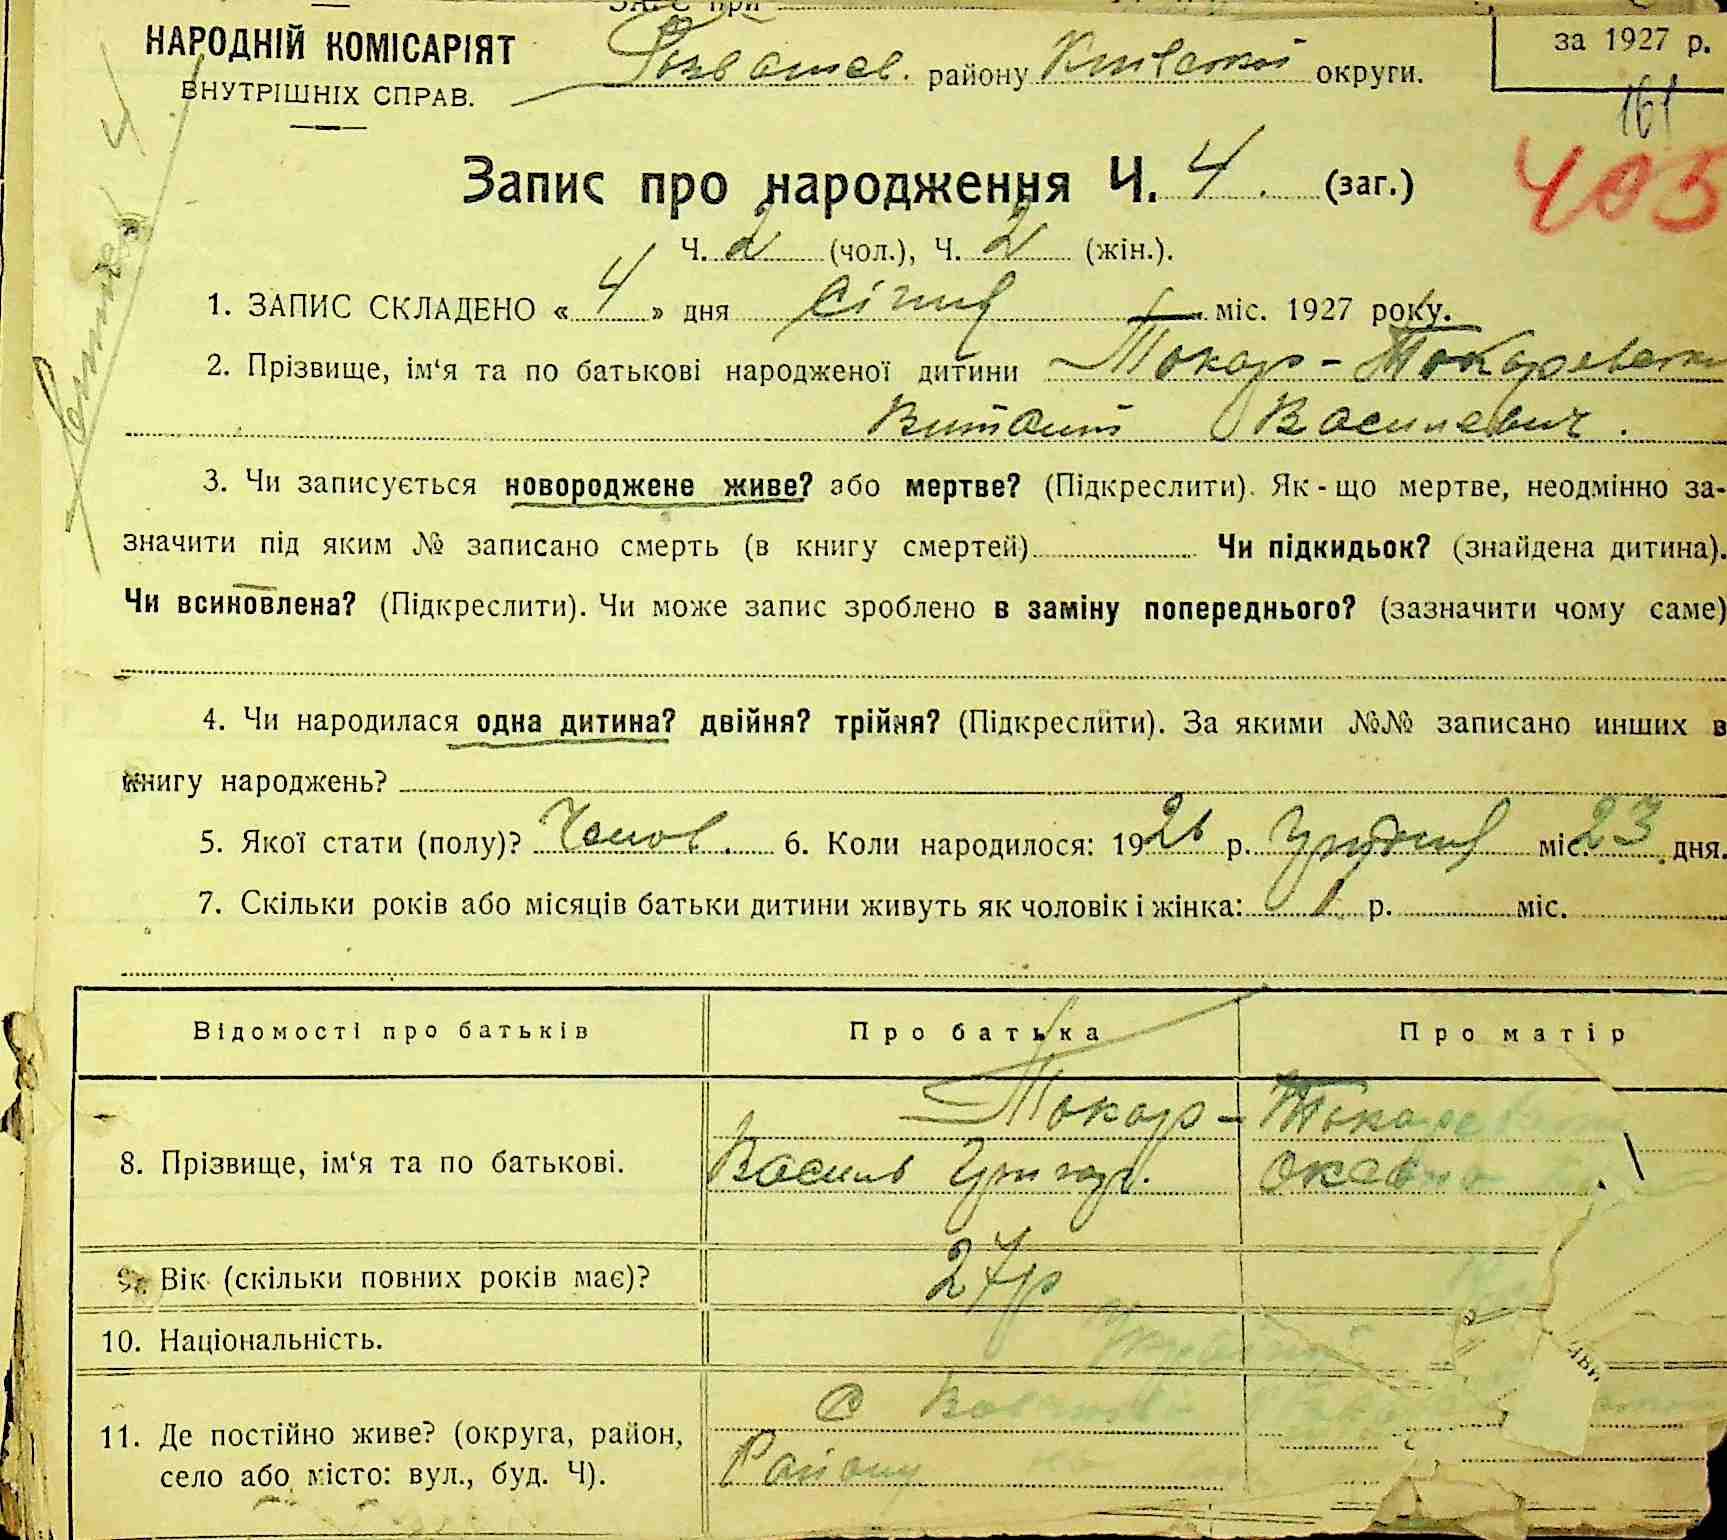 ЗАГС при
НАРОДНІЙ КОМІСАРІЯТ
ВНУТРІШНІХ СПРАВ.
району Київської округи.
за 1927 р.
161
403
Запис про народження Ч. 4. (заг.)
Ч. 2 (чол.), Ч. 2 (жін.).
1. ЗАПИС СКЛАДЕНО « 4 » дня січня міс. 1927 року.
2. Прізвище, ім‘я та по батькові народженої дитини Токар-Токаревский
Виталий Василевич.
3. Чи записується новороджене живе? або мертве? (Підкреслити). Як-що мертве, неодмінно за-
значити під яким № записано смерть (в книгу смертей) Чи підкидьок? (знайдена дитина).
Чи всиновлена? (Підкреслити). Чи може запис зроблено в заміну попереднього? (зазначити чому саме)
4. Чи народилася одна дитина? двійня? трійня? (Підкреслити). За якими №№ записано инших в
книгу народжень?
5. Якої стати (полу)? Чолов. 6. Коли народилося: 1926 р. Грудня міс. 23 дня.
7. Скільки років або місяців батьки дитини живуть як чоловік і жінка: 1 р. міс.
Відомості про батьків Про батька Про матір
8. Прізвище, ім‘я та по батькові. Токар-Токаревские
Василь Григор. Оксана
9. Вік (скільки повних років має)? 27 р
10. Національність.
11. Де постійно живе? (округа, район,
село або місто: вул., буд. Ч).
с
Району